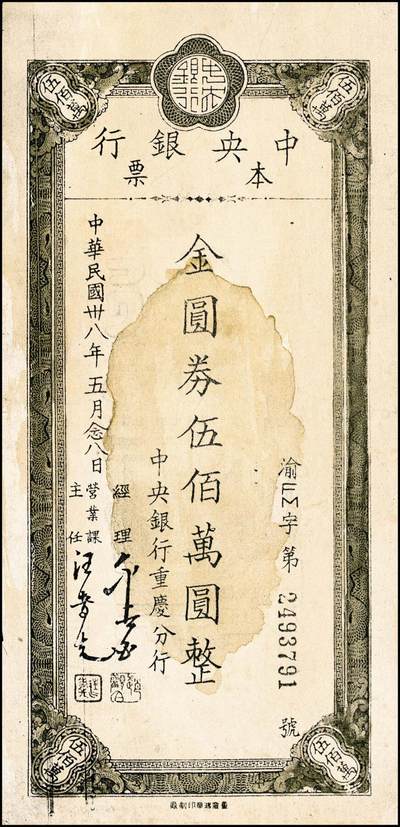 中央銀行
本票
伍佰萬
伍佰萬
渝 字第2493791號
金圓券伍佰萬圓整
中央銀行重慶分行
中華民國卅八年五月念八日
經理
營業課主任
伍佰萬
伍佰萬